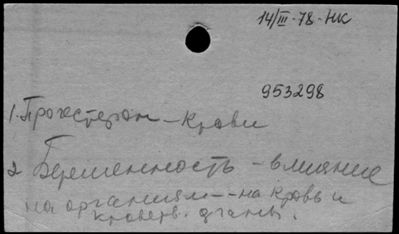 14/III-78-НК
953298
1. Прогестерон - крови
2 Беременность - влияние
на организм - на кровь и
кроветв. органы.